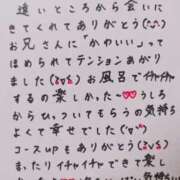 遠いところから会いに
きてくれてありがとう(^^)
お兄さんに「かわいい」って
ほめられてテンションあがり
ました(≧▽≦)お風呂でイチャイチャ
するの楽しかった〜♥♥うしろ
からひっついてもらうの気持ち
よくて幸せでした(´▽`)
コースupもありがとう(≧▽≦)
まったりイチャイチャできて楽し